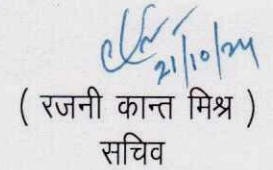 21/10/24
( रजनी कान्त मिश्र )
सचिव